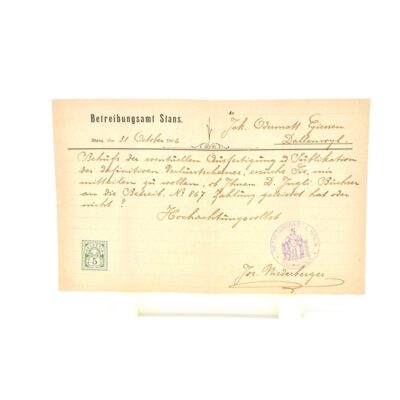 An
Betreibungsamt Stans.
Jos. Odermatt Giessen
Dallenwyl.
Stans, den 31 October 1906
Behufs der eventuellen Ausfertigung & Publikation
des definitiven Verlustscheines, ersuche Sie, mir
mitteilen zu wollen, ob Ihnen D. Büchser
an die Betreib. Nº 867 Zahlung geleistet hat oder
nicht?
Hochachtungsvollst
5
Jos. Niederberger